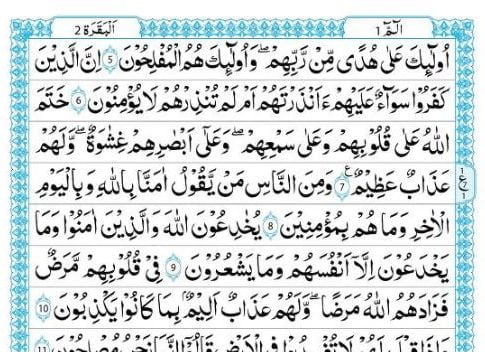 الٓمّٓ ١
اَلْبَقَرَة ٢
اُولٰٓئِكَ عَلٰى هُدًى مِّنْ رَّبِّهِمْ ۖ وَاُولٰٓئِكَ هُمُ الْمُفْلِحُوْنَ ۝5 اِنَّ الَّذِيْنَ
كَفَرُوْا سَوَآءٌ عَلَيْهِمْ ءَاَنْذَرْتَهُمْ اَمْ لَمْ تُنْذِرْهُمْ لَا يُؤْمِنُوْنَ ۝6 خَتَمَ
اللّٰهُ عَلٰى قُلُوْبِهِمْ وَعَلٰى سَمْعِهِمْ ۖ وَعَلٰٓى اَبْصَارِهِمْ غِشَاوَةٌ ۖ وَّلَهُمْ
عَذَابٌ عَظِيْمٌ ۝7 ع وَمِنَ النَّاسِ مَنْ يَّقُوْلُ اٰمَنَّا بِاللّٰهِ وَبِالْيَوْمِ
الْاٰخِرِ وَمَا هُمْ بِمُؤْمِنِيْنَ ۝8 يُخٰدِعُوْنَ اللّٰهَ وَالَّذِيْنَ اٰمَنُوْا وَمَا
يَخْدَعُوْنَ اِلَّآ اَنْفُسَهُمْ وَمَا يَشْعُرُوْنَ ۝9 فِيْ قُلُوْبِهِمْ مَّرَضٌ
فَزَادَهُمُ اللّٰهُ مَرَضًا ۖ وَّلَهُمْ عَذَابٌ اَلِيْمٌ ۢ بِمَا كَانُوْا يَكْذِبُوْنَ ۝10